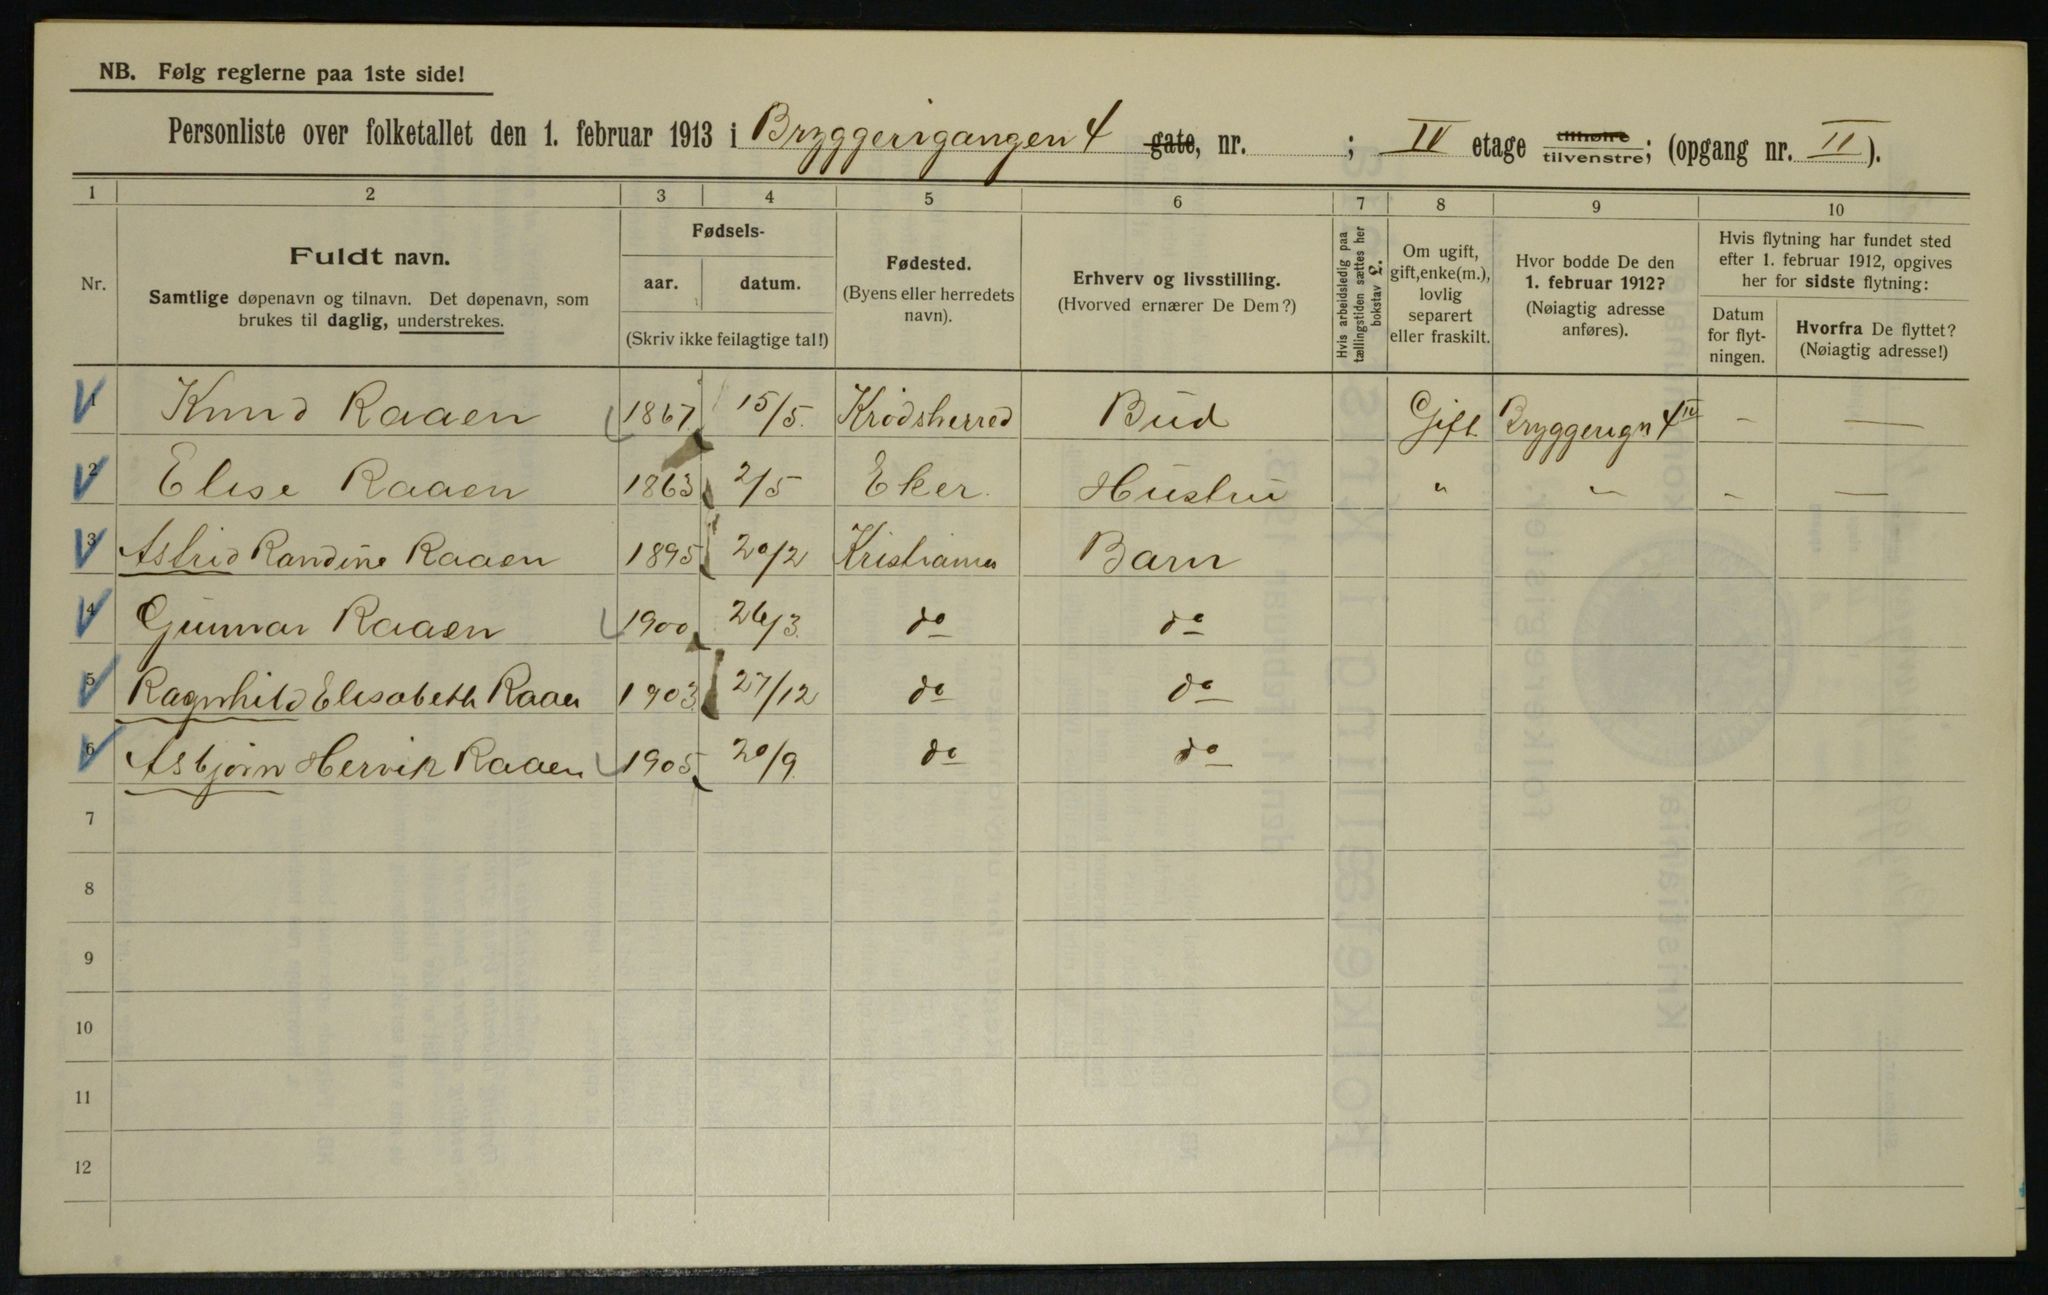 NB. Følg reglerne paa 1ste side!
Personliste over folketallet den 1. februar 1913 i Bryggerigangen 4 gate, nr. ; IV etage tilhøire tilvenstre; (opgang nr. II ).
1 2 3 4 5 6 7 8 9 10
Nr.
Fuldt navn.
Samtlige døpenavn og tilnavn. Det døpenavn, som
brukes til daglig, understrekes.
Fødsels-
aar. datum.
(Skriv ikke feilagtige tal!)
Fødested.
(Byens eller herredets
navn).
Erhverv og livsstilling.
(Hvorved ernærer De Dem?)
Hvis arbeidsledig paa
tællingstiden sættes her
bokstav L.
Om ugift,
gift, enke(m.),
lovlig
separert
eller fraskilt.
Hvor bodde De den
1. februar 1912?
(Nøiagtig adresse
anføres).
Hvis flytning har fundet sted
efter 1. februar 1912, opgives
her for sidste flytning:
Datum
for flyt-
ningen.
Hvorfra De flyttet?
(Nøiagtig adresse!)
1 Knud Raaen 1867 15/5. Krødsherred Bud Gift Bryggerign 4 IV – —
2 Elise Raaen 1863 2/5 Eker. Hustru " " – —
3 Astrid Randine Raaen 1895 20/2 Kristiania Barn
4 Gunnar Raaen 1900 26/3. do do
5 Ragnhild Elisabeth Raaen 1903 27/12 do do
6 Asbjørn Henrik Raaen 1905 20/9 do do
7
8
9
10
11
12